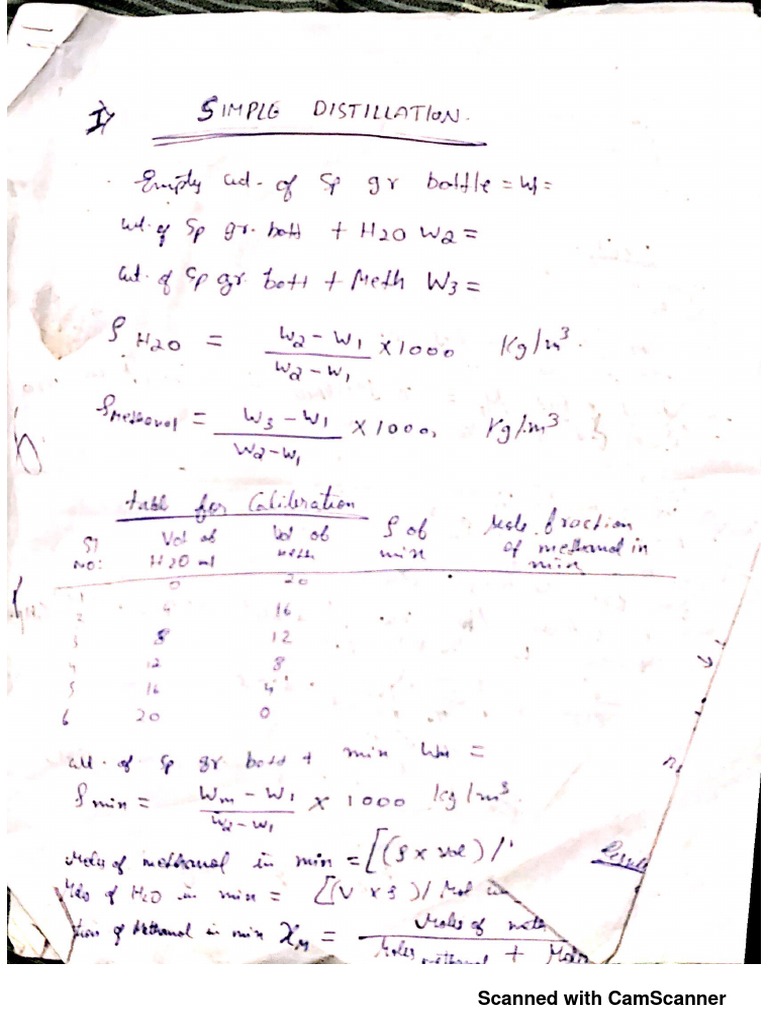 I> SIMPLE DISTILLATION.
Empty wt. of Sp gr bottle = W1 =
wt. of Sp gr. bott + H2O W2 =
wt. of Sp gr. bott + Meth W3 =
ρ H2O = W2 - W1 / W2 - W1 × 1000 Kg/m³.
ρ Methanol = W3 - W1 / W2 - W1 × 1000, Kg/m³
table for Caliberation
Sl No: Vol of H2O ml Vol of meth ρ of mix Mole fraction of methanol in mix
1 0 20
2 4 16
3 8 12
4 12 8
5 16 4
6 20 0
wt. of Sp gr bott + mix Wm =
ρ mix = Wm - W1 / W2 - W1 × 1000 kg/m³.
Moles of methanol in mix = [(ρ x vol) /
Mols of H2O in mix = [(V x ρ) / Mol
tion of Methanol in mix XM = Moles of meth / Moles methanol + Moles
n1
Resul
Scanned with CamScanner